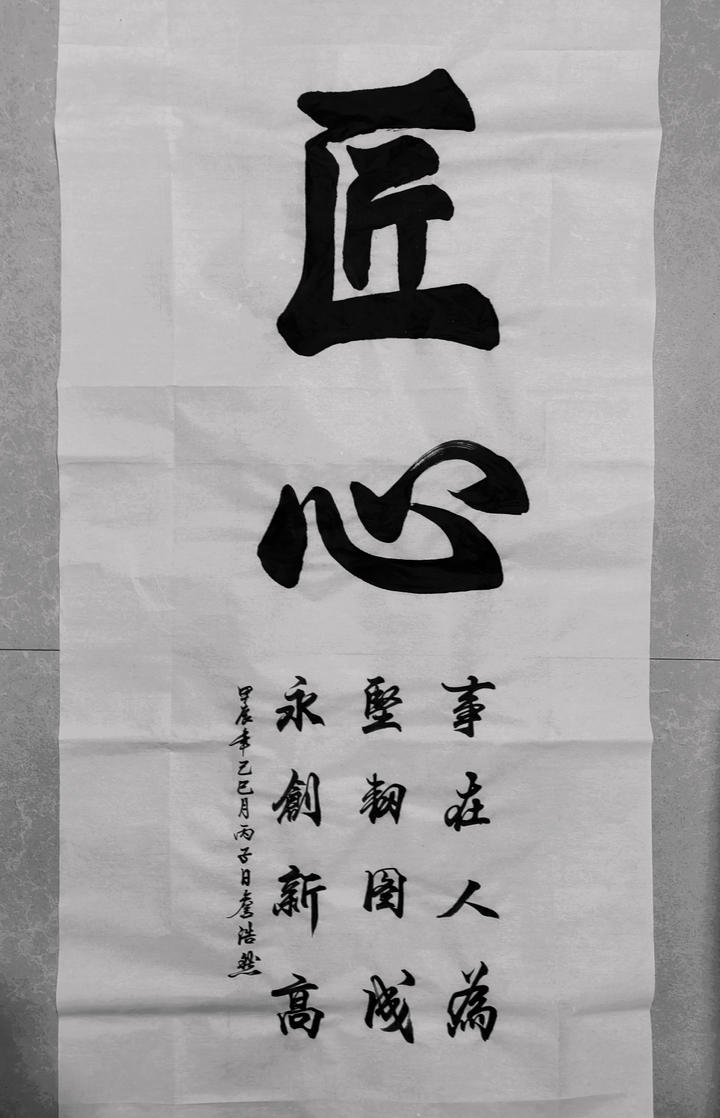 匠心
事在人為
堅韌图成
永創新高
甲辰年己巳月丙子日詹浩然